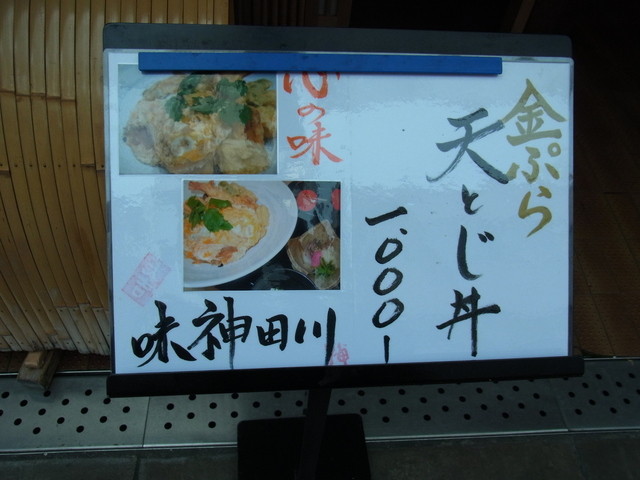 金ぷら
天とじ丼
一、〇〇〇ー
心の味
味神田川